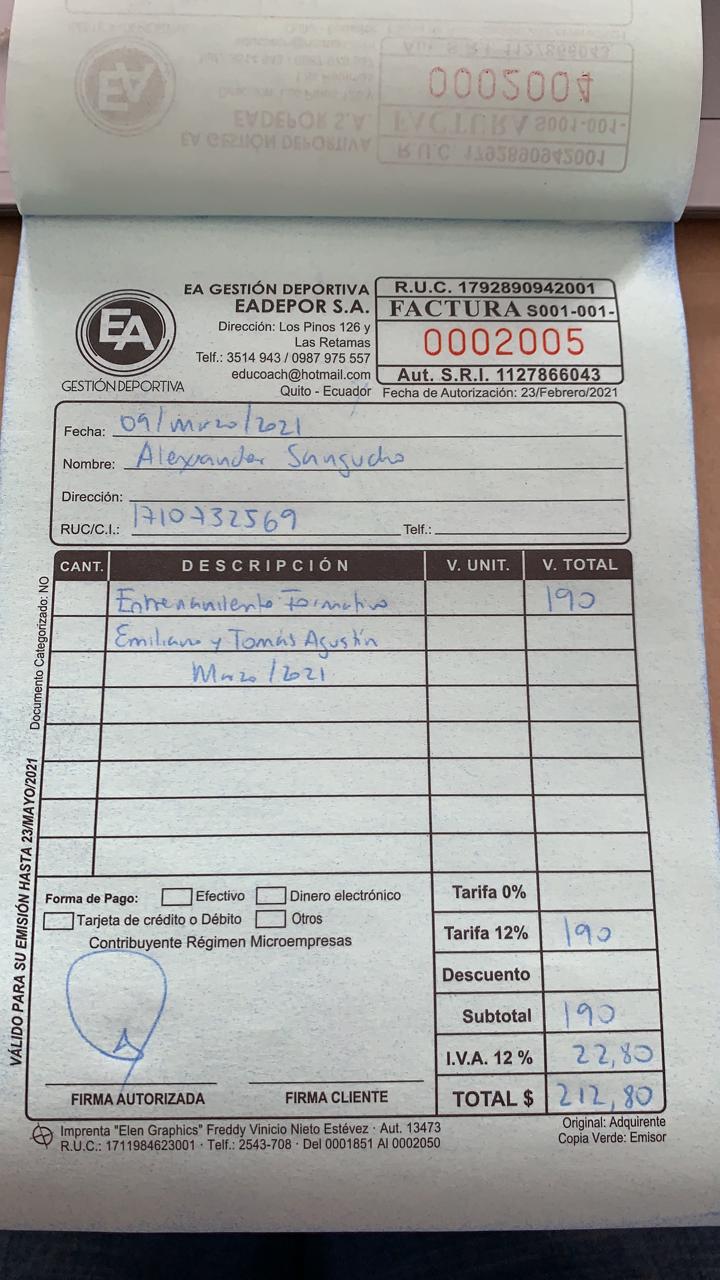 Aut. S.R.I. 1127866043
0002004
FACTURA S001-001-
R.U.C. 1792890942001
EADEPOR S.A.
EA GESTIÓN DEPORTIVA
EA
GESTIÓN DEPORTIVA
EA GESTIÓN DEPORTIVA
EADEPOR S.A.
Dirección: Los Pinos 126 y
Las Retamas
Telf.: 3514 943 / 0987 975 557
educoach@hotmail.com
Quito - Ecuador
R.U.C. 1792890942001
FACTURA S001-001-
0002005
Aut. S.R.I. 1127866043
Fecha de Autorización: 23/Febrero/2021
Fecha: 09/marzo/2021
Nombre: Alexander Sangucho
Dirección:
RUC/C.I.: 1710732569 Telf.:
CANT. DESCRIPCIÓN V. UNIT. V. TOTAL
Entrenamiento Formativo 190
Emiliano y Tomás Agustín
Marzo/2021
Documento Categorizado: NO
VÁLIDO PARA SU EMISIÓN HASTA 23/MAYO/2021
Forma de Pago: Efectivo Dinero electrónico
Tarjeta de crédito o Débito Otros
Contribuyente Régimen Microempresas
Tarifa 0%
Tarifa 12% 190
Descuento
Subtotal 190
I.V.A. 12 % 22,80
TOTAL $ 212,80
FIRMA AUTORIZADA FIRMA CLIENTE
Imprenta "Elen Graphics" Freddy Vinicio Nieto Estévez · Aut. 13473
R.U.C.: 1711984623001 · Telf.: 2543-708 · Del 0001851 Al 0002050
Original: Adquirente
Copia Verde: Emisor